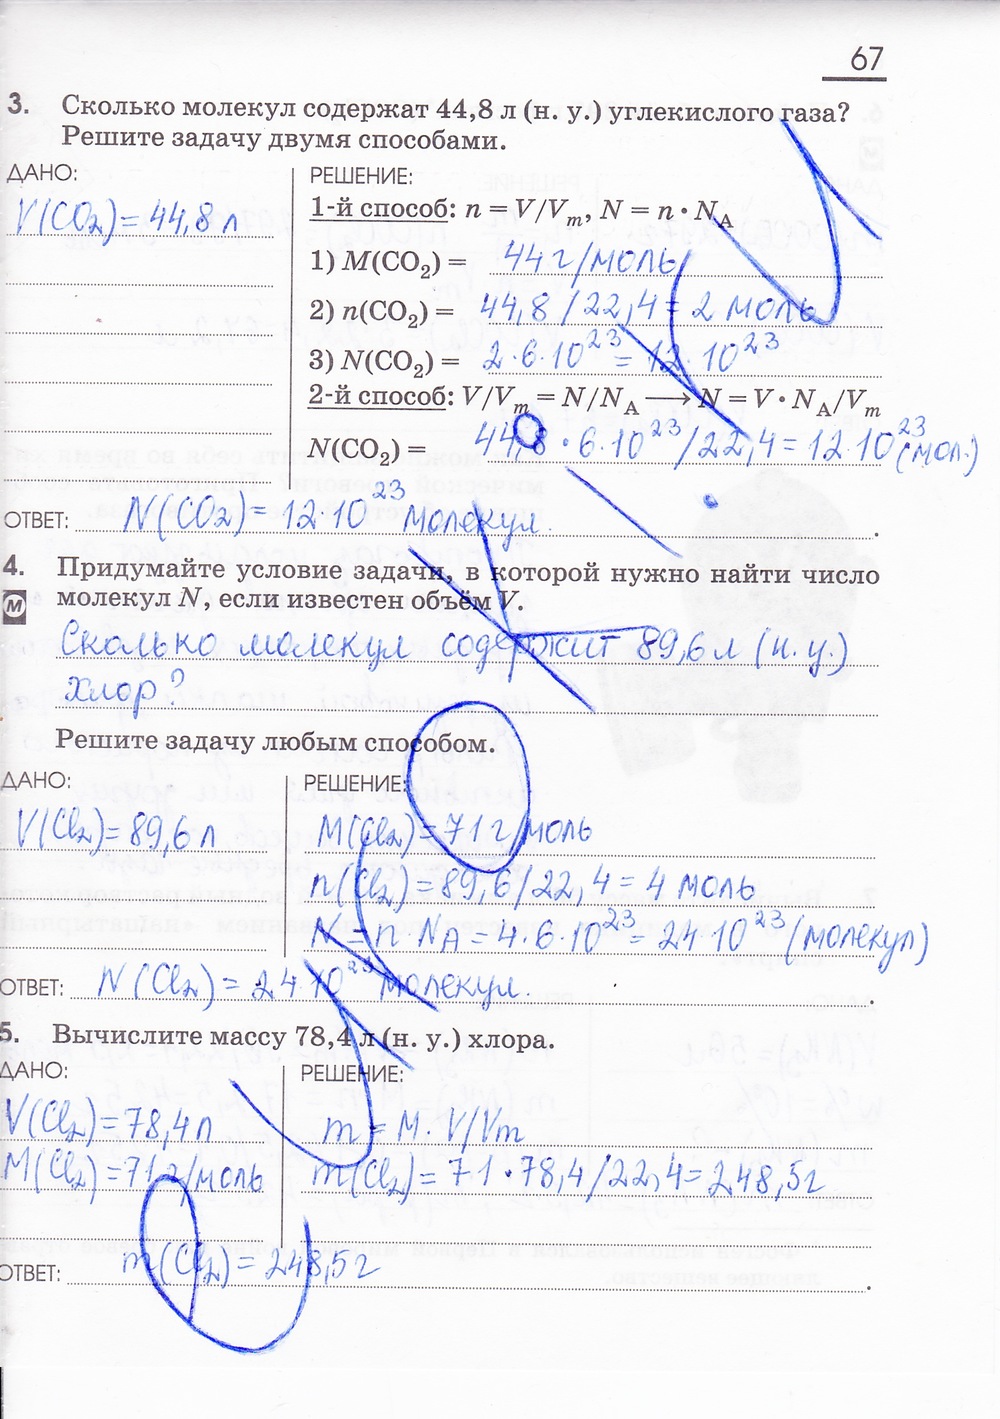 67
3. Сколько молекул содержат 44,8 л (н. у.) углекислого газа?
Решите задачу двумя способами.
ДАНО:
V(CO₂)=44,8 л
РЕШЕНИЕ:
1-й способ: n = V/Vₘ, N = n • N_A
1) M(CO₂) = 44 г/моль
2) n(CO₂) = 44,8/22,4 = 2 моль
3) N(CO₂) = 2·6·10²³ = 12·10²³
2-й способ: V/Vₘ = N/N_A ⟶ N = V • N_A/Vₘ
N(CO₂) = 44,8·6·10²³/22,4=12·10²³(мол.)
ОТВЕТ: N(CO₂)=12·10²³ молекул.
4. Придумайте условие задачи, в которой нужно найти число
М молекул N, если известен объём V.
Сколько молекул содержит 89,6 л (н. у.)
хлор?
Решите задачу любым способом.
ДАНО:
V(Cl₂)=89,6 л
РЕШЕНИЕ:
M(Cl₂)=71 г/моль
n(Cl₂)=89,6/22,4=4 моль
N=n·N_A=4·6·10²³=24·10²³(молекул)
ОТВЕТ: N(Cl₂)=24·10²³ молекул.
5. Вычислите массу 78,4 л (н. у.) хлора.
ДАНО:
V(Cl₂)=78,4 л
M(Cl₂)=71 г/моль
РЕШЕНИЕ:
m=M·V/Vm
m(Cl₂)=71·78,4/22,4=248,5г
ОТВЕТ: m(Cl₂)=248,5г